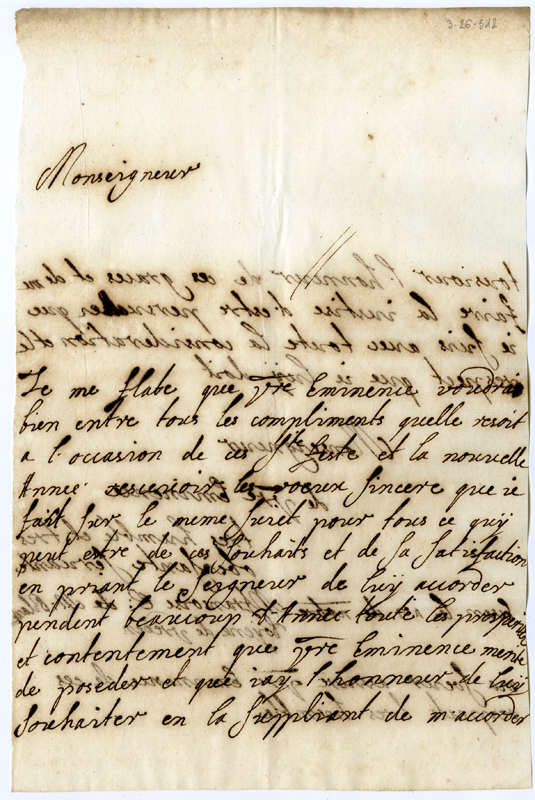 3-26-512
Monseigneur
Je me flate que vre Eminence voudra
bien entre tous les compliments quelle resoit
a l'occasion de ces Ste feste et la nouvelle
Annee resevoir les voeux sincere que ie
fait sur le meme suret pour tous ce quy
peut estre de ces souhaits et de sa satisfaction
en priant le Seigneur de luy accorder
pendent beaucoup d'Annee toute les prosperité
et contentement que vre Eminence merite
de poseder et que iay l'honneur de luy
souhaiter en la suppliant de m'accorder